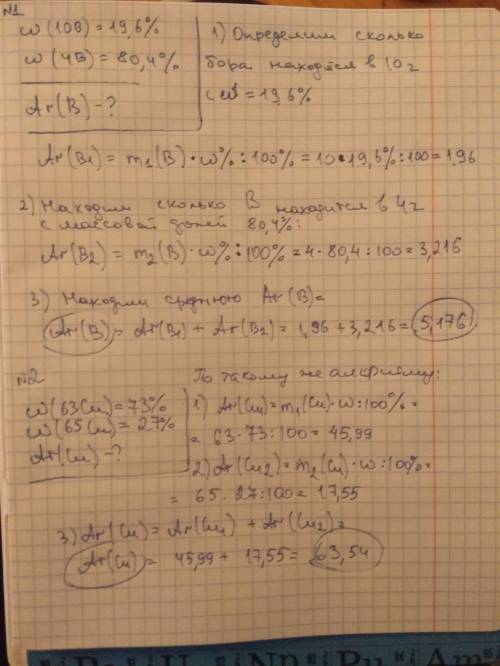 №1
w(10B) = 19,6%
w(4B) = 80,4%
Ar(B) - ?
1) Определим сколько
бора находится в 10г
с w = 19,6%
Ar(B1) = m1(B) · w% : 100% = 10 · 19,6% : 100 = 1,96
2) Находим сколько B находится в 4г
с массовой долей 80,4%:
Ar(B2) = m2(B) · w% : 100% = 4 · 80,4 : 100 = 3,216
3) Находим среднюю Ar(B) =
Ar(B) = Ar(B1) + Ar(B2) = 1,96 + 3,216 = 5,176
№2
w(63Cu) = 73%
w(65Cu) = 27%
Ar(Cu) - ?
По такому же алкритму:
1) Ar(Cu) = m1(Cu) · w : 100% =
= 63 · 73 : 100 = 45,99
2) Ar(Cu2) = m2(Cu) · w : 100% =
= 65 · 27 : 100 = 17,55
3) Ar(Cu) = Ar(Cu1) + Ar(Cu2) =
Ar(Cu) = 45,99 + 17,55 = 63,54
Np Pu Am